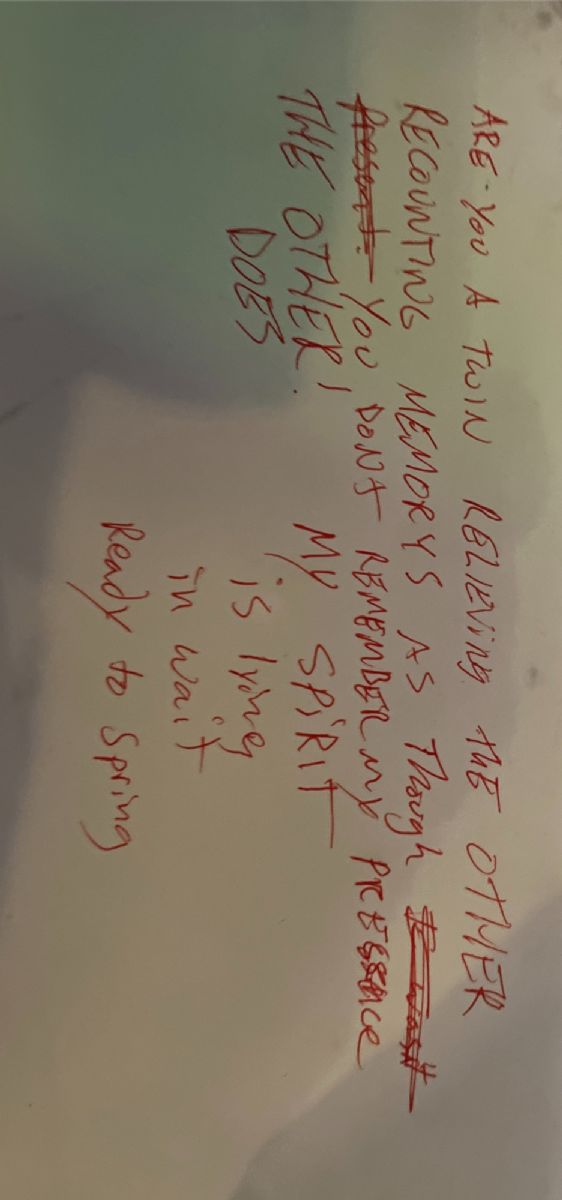 ARE YOU A TWIN RELIEVING THE OTHER
RECOUNTING MEMORYS AS Though
present. YOU DONT REMEMBER my PRESSENCE
THE OTHER!
DOES
My SPIRIT
is lying
in wait
Ready to Spring